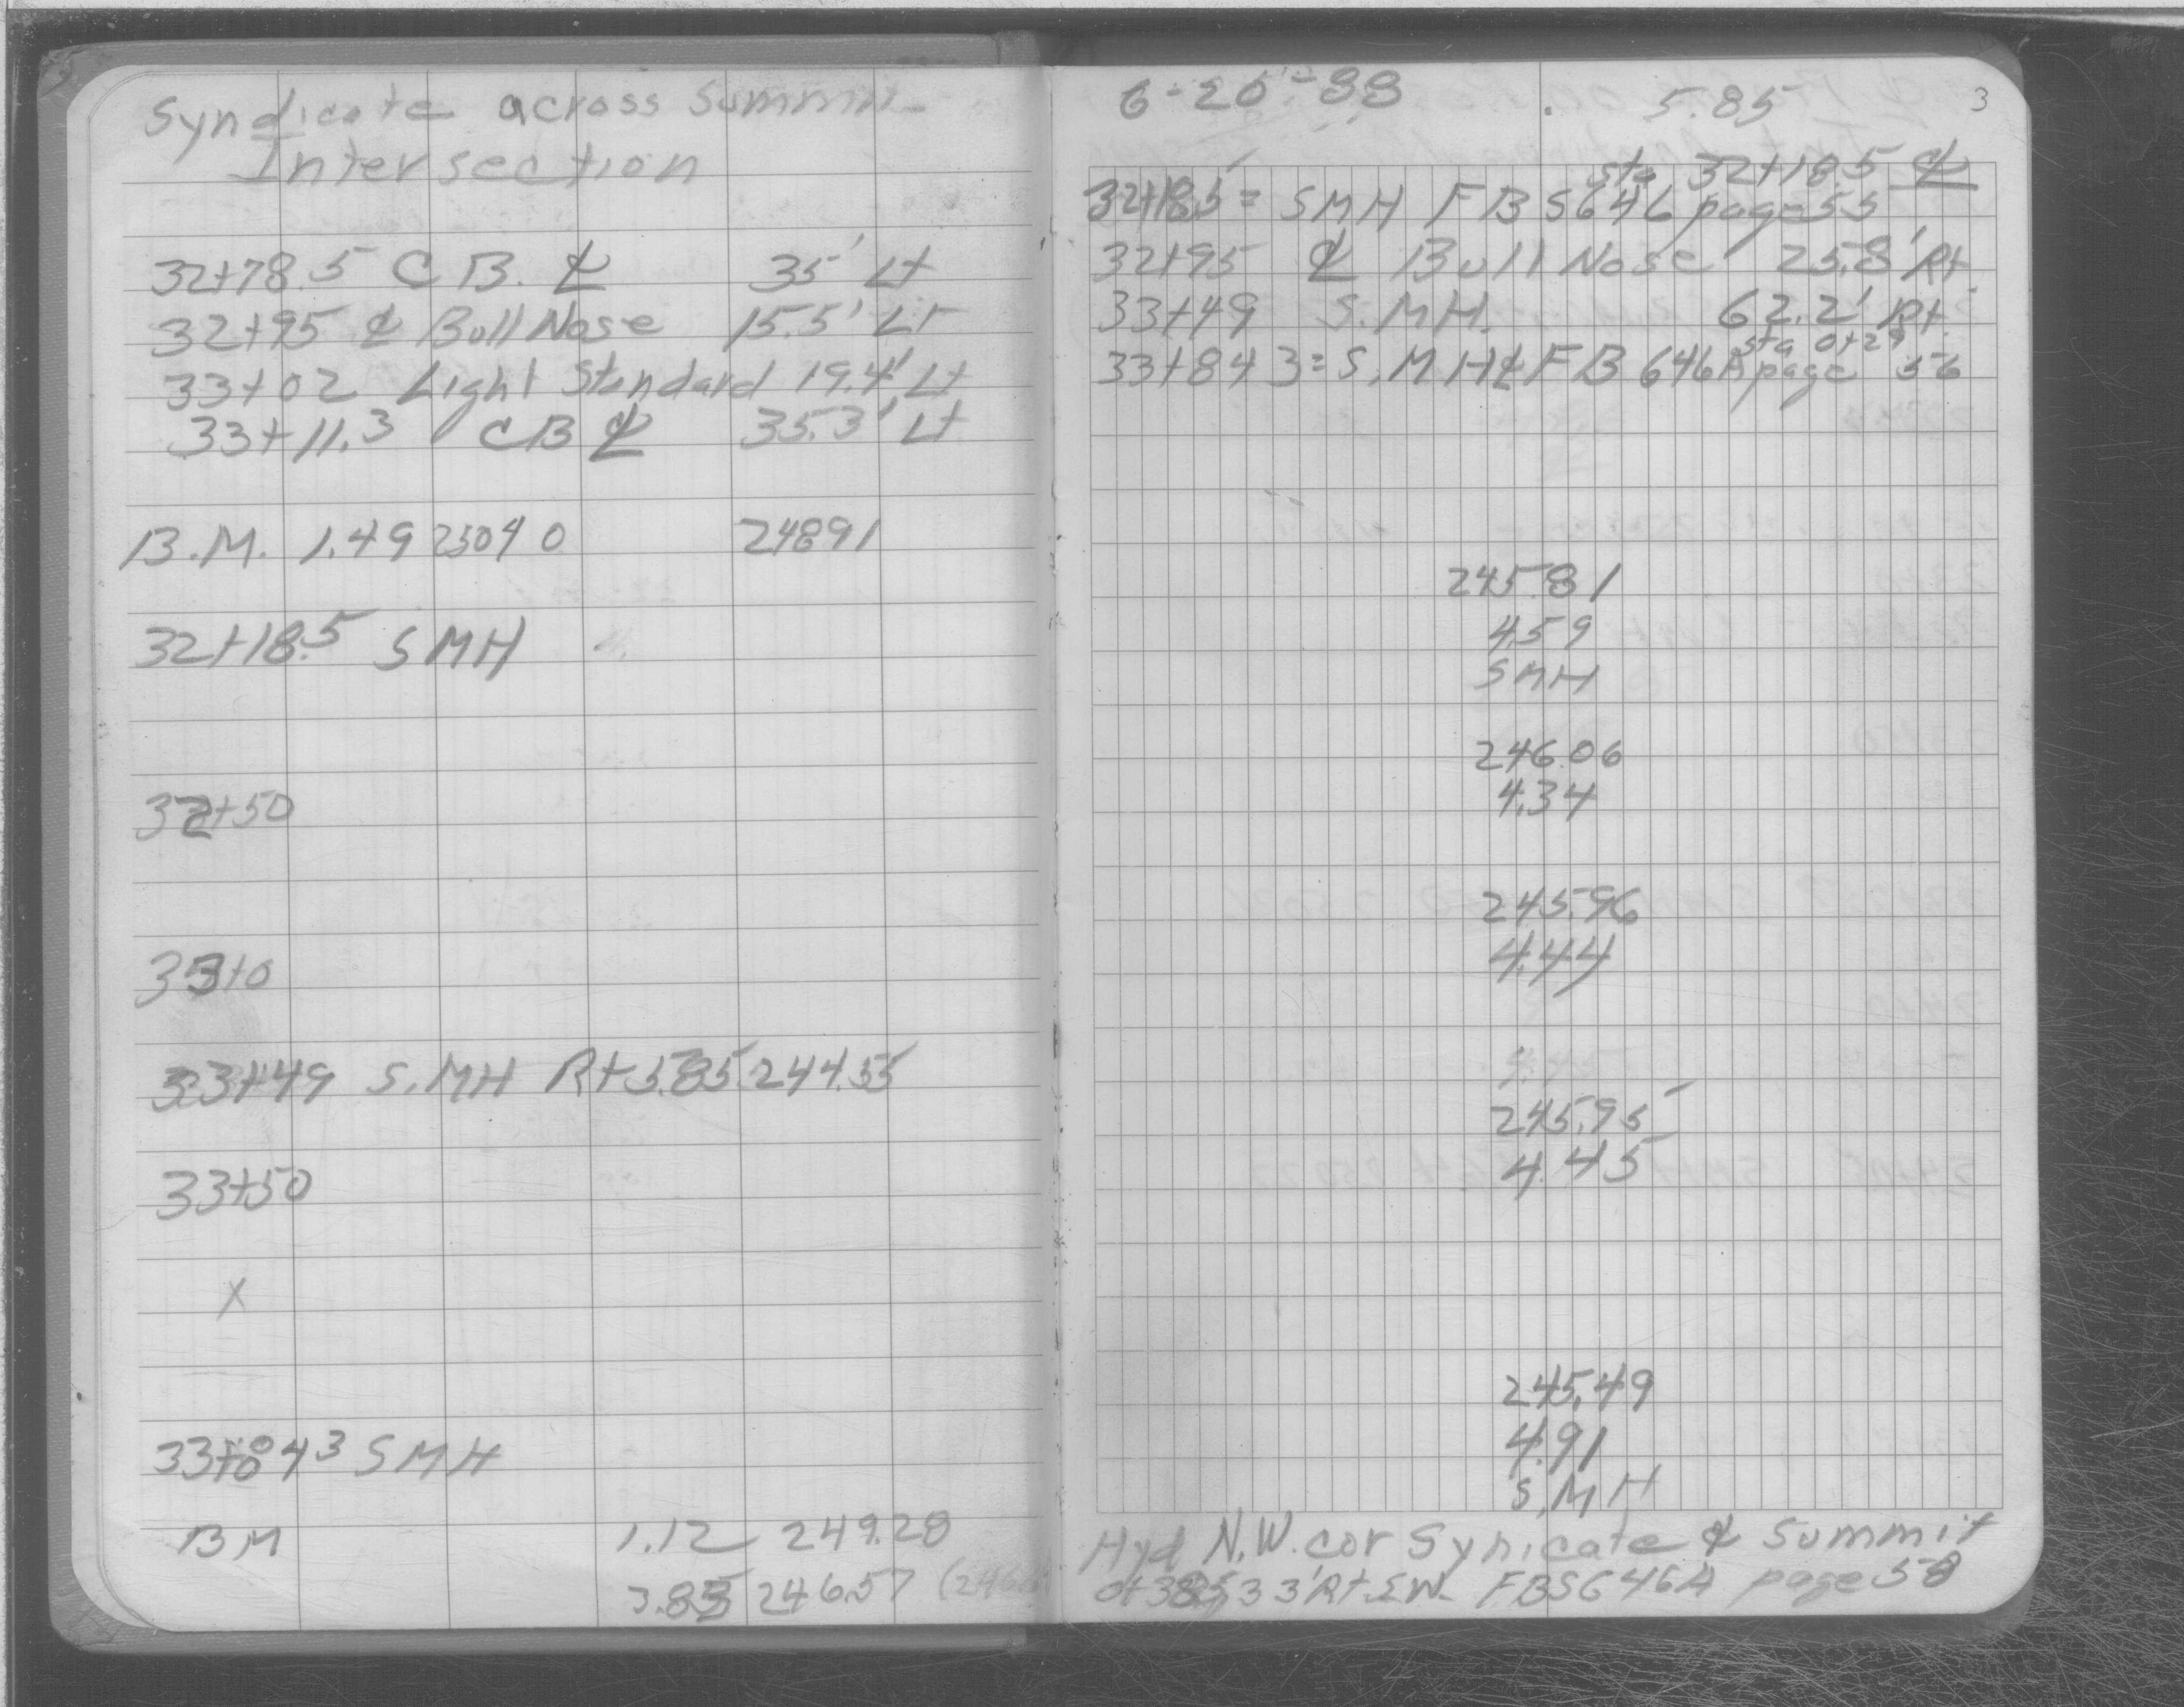 Syndicate across Summit
Intersection
32+78.5 CB. ℄ 35' Lt
32+95 ℄ Bull Nose 15.5' Lt
33+02 Light Standard 19.4' Lt
33+11.3 CB ℄ 35.3' Lt
B.M. 1.49 25040 24891
32+18.5 SMH
32+50
33+0
33+49 S.MH Rt 5.85 244.55
33+50
X
33+843 SMH
BM 1.12 249.28
3.83 246.57
6-20-88 5.85 3
sta 32+18.5 ℄
32+18.5 = SMH FB5646 page 55
32+95 ℄ Bull Nose 25.8' Rt
33+49 S.MH. 62.2' Rt.
sta 0+29
33+843 = S.MH ℄ FB 646A page 56
245.81
4.59
SMH
246.06
4.34
245.96
4.44
245.95
4.45
245.49
4.91
S.MH
Hyd N.W. cor Synicate & Summit
33' Rt. FB5646A page 58